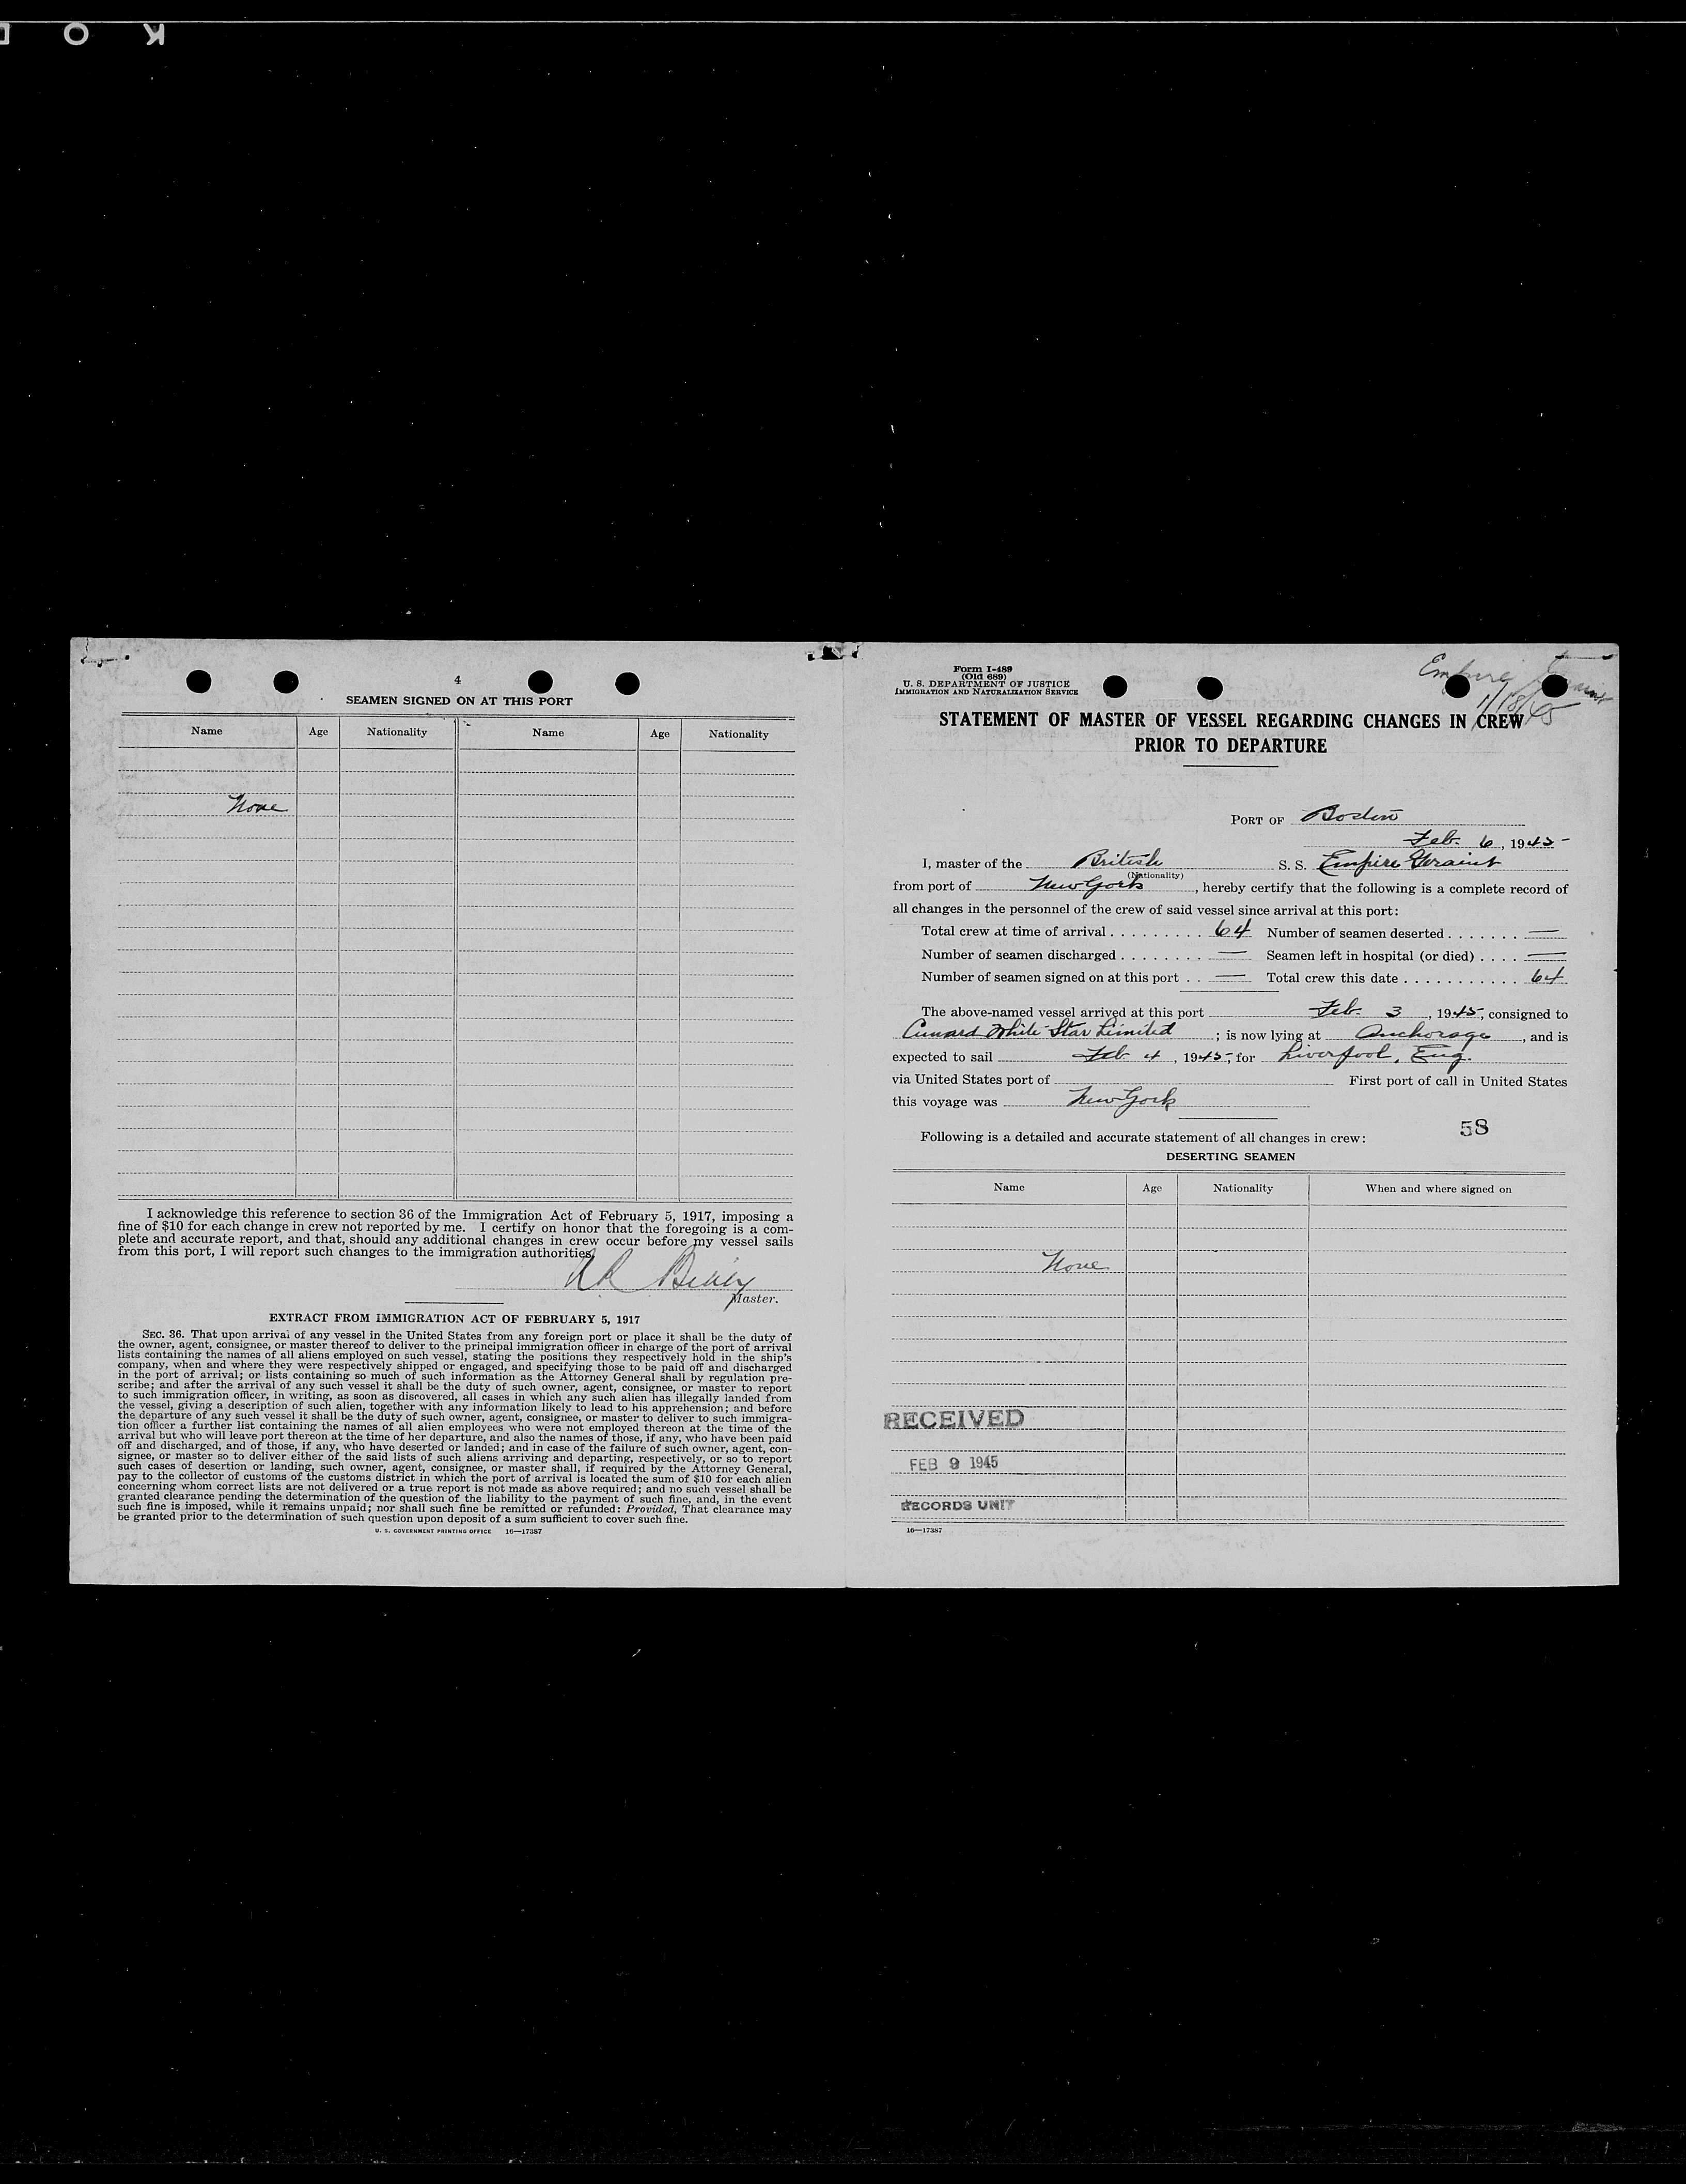 K O D
4
SEAMEN SIGNED ON AT THIS PORT
Name Age Nationality Name Age Nationality
None
I acknowledge this reference to section 36 of the Immigration Act of February 5, 1917, imposing a
fine of $10 for each change in crew not reported by me. I certify on honor that the foregoing is a com-
plete and accurate report, and that, should any additional changes in crew occur before my vessel sails
from this port, I will report such changes to the immigration authorities.
Master.
EXTRACT FROM IMMIGRATION ACT OF FEBRUARY 5, 1917
SEC. 36. That upon arrival of any vessel in the United States from any foreign port or place it shall be the duty of
the owner, agent, consignee, or master thereof to deliver to the principal immigration officer in charge of the port of arrival
lists containing the names of all aliens employed on such vessel, stating the positions they respectively hold in the ship's
company, when and where they were respectively shipped or engaged, and specifying those to be paid off and discharged
in the port of arrival; or lists containing so much of such information as the Attorney General shall by regulation pre-
scribe; and after the arrival of any such vessel it shall be the duty of such owner, agent, consignee, or master to report
to such immigration officer, in writing, as soon as discovered, all cases in which any such alien has illegally landed from
the vessel, giving a description of such alien, together with any information likely to lead to his apprehension; and before
the departure of any such vessel it shall be the duty of such owner, agent, consignee, or master to deliver to such immigra-
tion officer a further list containing the names of all alien employees who were not employed thereon at the time of the
arrival but who will leave port thereon at the time of her departure, and also the names of those, if any, who have been paid
off and discharged, and of those, if any, who have deserted or landed; and in case of the failure of such owner, agent, con-
signee, or master so to deliver either of the said lists of such aliens arriving and departing, respectively, or so to report
such cases of desertion or landing, such owner, agent, consignee, or master shall, if required by the Attorney General,
pay to the collector of customs of the customs district in which the port of arrival is located the sum of $10 for each alien
concerning whom correct lists are not delivered or a true report is not made as above required; and no such vessel shall be
granted clearance pending the determination of the question of the liability to the payment of such fine, and, in the event
such fine is imposed, while it remains unpaid; nor shall such fine be remitted or refunded: Provided, That clearance may
be granted prior to the determination of such question upon deposit of a sum sufficient to cover such fine.
U. S. GOVERNMENT PRINTING OFFICE 16—17387
Form I-489
(Old 689)
U. S. DEPARTMENT OF JUSTICE
IMMIGRATION AND NATURALIZATION SERVICE
Empire Geraint
1/18/45
STATEMENT OF MASTER OF VESSEL REGARDING CHANGES IN CREW
PRIOR TO DEPARTURE
PORT OF Boston
Feb. 6, 1945
I, master of the British S. S. Empire Geraint
(Nationality)
from port of New York, hereby certify that the following is a complete record of
all changes in the personnel of the crew of said vessel since arrival at this port:
Total crew at time of arrival . . . . . . . . . 64 Number of seamen deserted . . . . . . . —
Number of seamen discharged . . . . . . . . — Seamen left in hospital (or died) . . . . —
Number of seamen signed on at this port . . — Total crew this date . . . . . . . . . . . 64
The above-named vessel arrived at this port Feb. 3, 1945, consigned to
Cunard White Star Limited; is now lying at Anchorage, and is
expected to sail Feb 4, 1945, for Liverpool, Eng.
via United States port of First port of call in United States
this voyage was New York
Following is a detailed and accurate statement of all changes in crew: 58
DESERTING SEAMEN
Name Age Nationality When and where signed on
None
RECEIVED
FEB 9 1945
RECORDS UNIT
16—17387